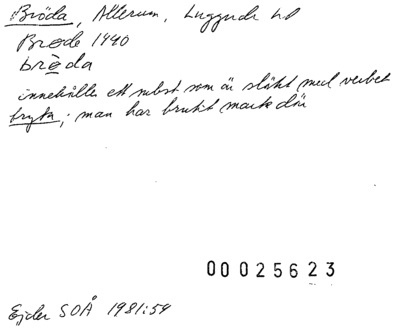 Bröda, Allerum, Luggude hd
Brode 1440
brèda
innehåller ett subst som är släkt med verbet
bryta; man har brutit mark där
00025623
Ejder SOÅ 1981:54